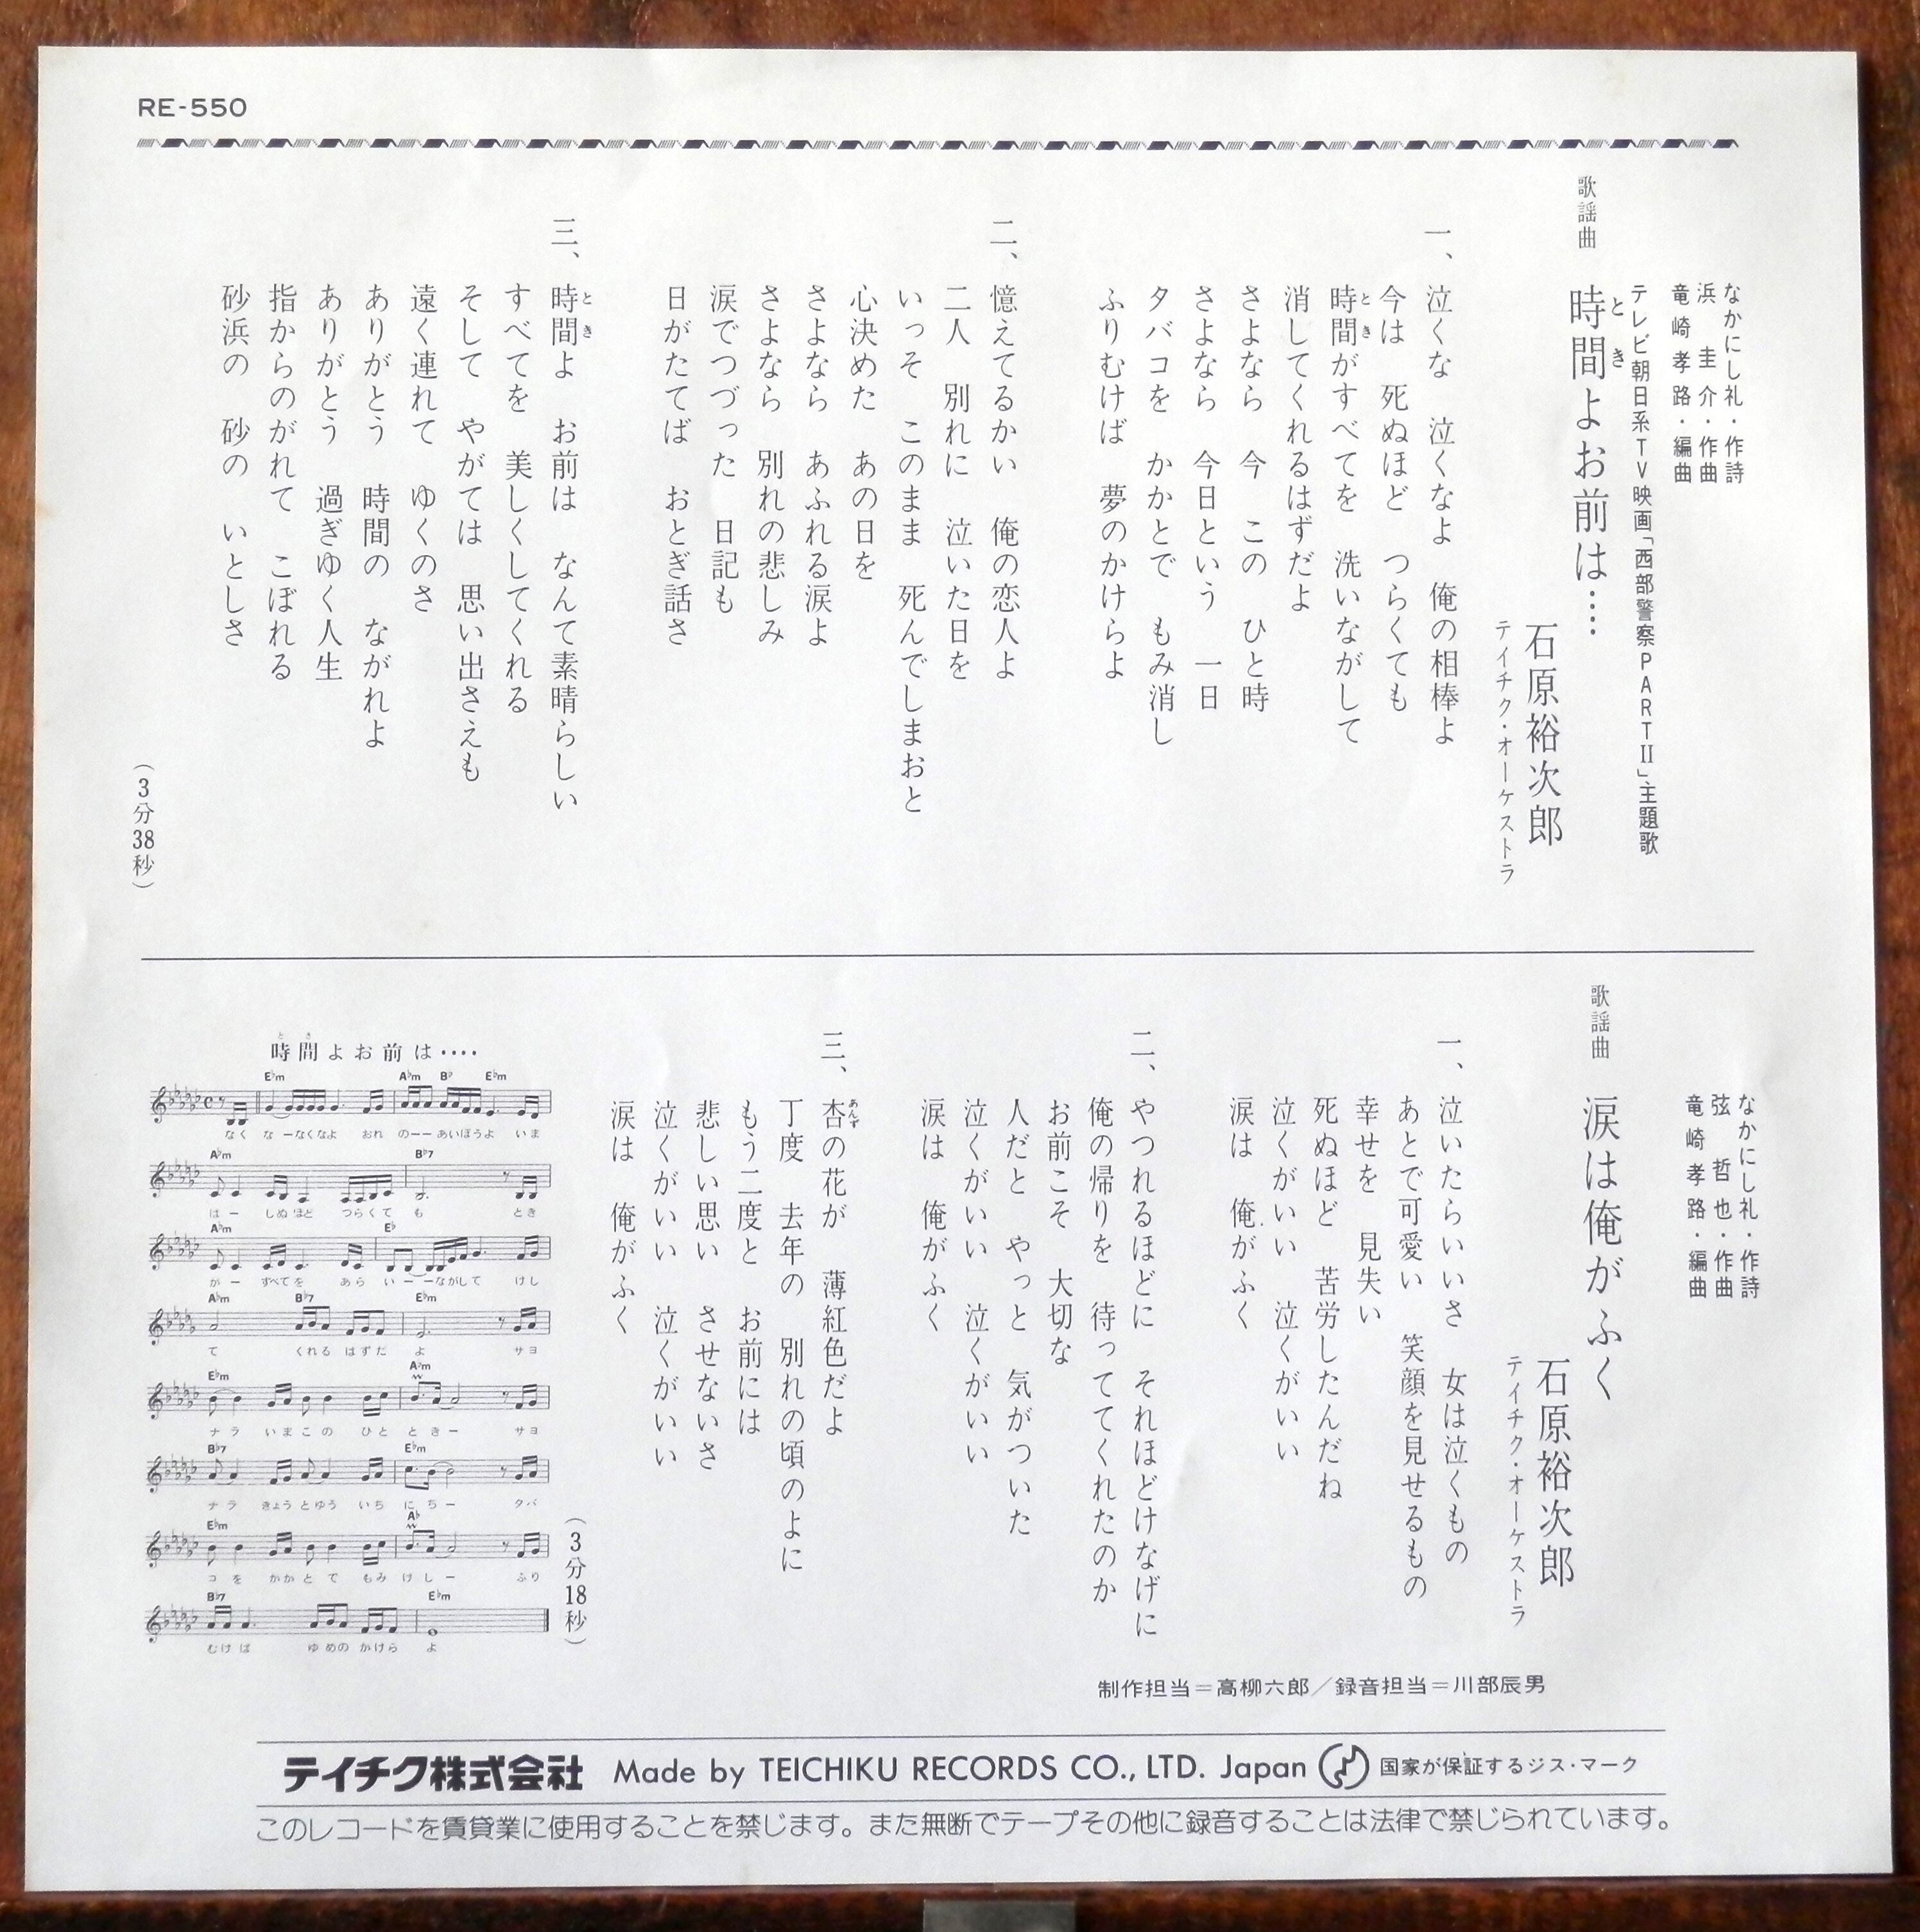 RE-550
なかにし礼・作詩
浜 圭介・作曲
竜崎孝路・編曲
テレビ朝日系TV映画「西部警察PARTⅡ」主題歌
歌謡曲 時間よお前は‥‥
とき
石原裕次郎
テイチク・オーケストラ
一、泣くな 泣くなよ 俺の相棒よ
今は 死ぬほど つらくても
時間がすべてを 洗いながして
とき
消してくれるはずだよ
さよなら 今 この ひと時
さよなら 今日という 一日
タバコを かかとで もみ消し
ふりむけば 夢のかけらよ
二、憶えてるかい 俺の恋人よ
二人 別れに 泣いた日を
いっそ このまま 死んでしまおと
心決めた あの日を
さよなら あふれる涙よ
さよなら 別れの悲しみ
涙でつづった 日記も
日がたてば おとぎ話さ
三、時間よ お前は なんて素晴らしい
とき
すべてを 美しくしてくれる
そして やがては 思い出さえも
遠く連れて ゆくのさ
ありがとう 時間の ながれよ
ありがとう 過ぎゆく人生
指からのがれて こぼれる
砂浜の 砂の いとしさ
（3分38秒）
なかにし礼・作詩
弦 哲也・作曲
竜崎孝路・編曲
歌謡曲 涙は俺がふく
石原裕次郎
テイチク・オーケストラ
一、泣いたらいいさ 女は泣くもの
あとで可愛い 笑顔を見せるもの
幸せを 見失い
死ぬほど 苦労したんだね
泣くがいい 泣くがいい
涙は 俺がふく
二、やつれるほどに それほどけなげに
俺の帰りを 待っててくれたのか
お前こそ 大切な
人だと やっと 気がついた
泣くがいい 泣くがいい
涙は 俺がふく
三、杏の花が 薄紅色だよ
あんず
丁度 去年の 別れの頃のよに
もう二度と お前には
悲しい思い させないさ
泣くがいい 泣くがいい
涙は 俺がふく
（3分18秒）
とき
時間よお前は‥‥
E♭m A♭m B♭ E♭m
なく な ーなくなよ おれ のーー あいぼうよ いま
A♭m B♭7
はー しぬほど つらくて も とき
A♭m E♭
がー すべてを あら いーーながして けし
A♭m B♭7 E♭m
て くれる はずだ よ サヨ
E♭m A♭m
ナラ いまこの ひと ときー サヨ
B♭7 E♭m
ナラ きょうとゆう いち にちー タバ
E♭m A♭
コを かかとで もみ けしー ふり
B♭7 E♭m
むけば ゆめの かけら よ
制作担当＝高柳六郎／録音担当＝川部辰男
テイチク株式会社 Made by TEICHIKU RECORDS CO., LTD. Japan 国家が保証するジス・マーク
このレコードを賃貸業に使用することを禁じます。また無断でテープその他に録音することは法律で禁じられています。